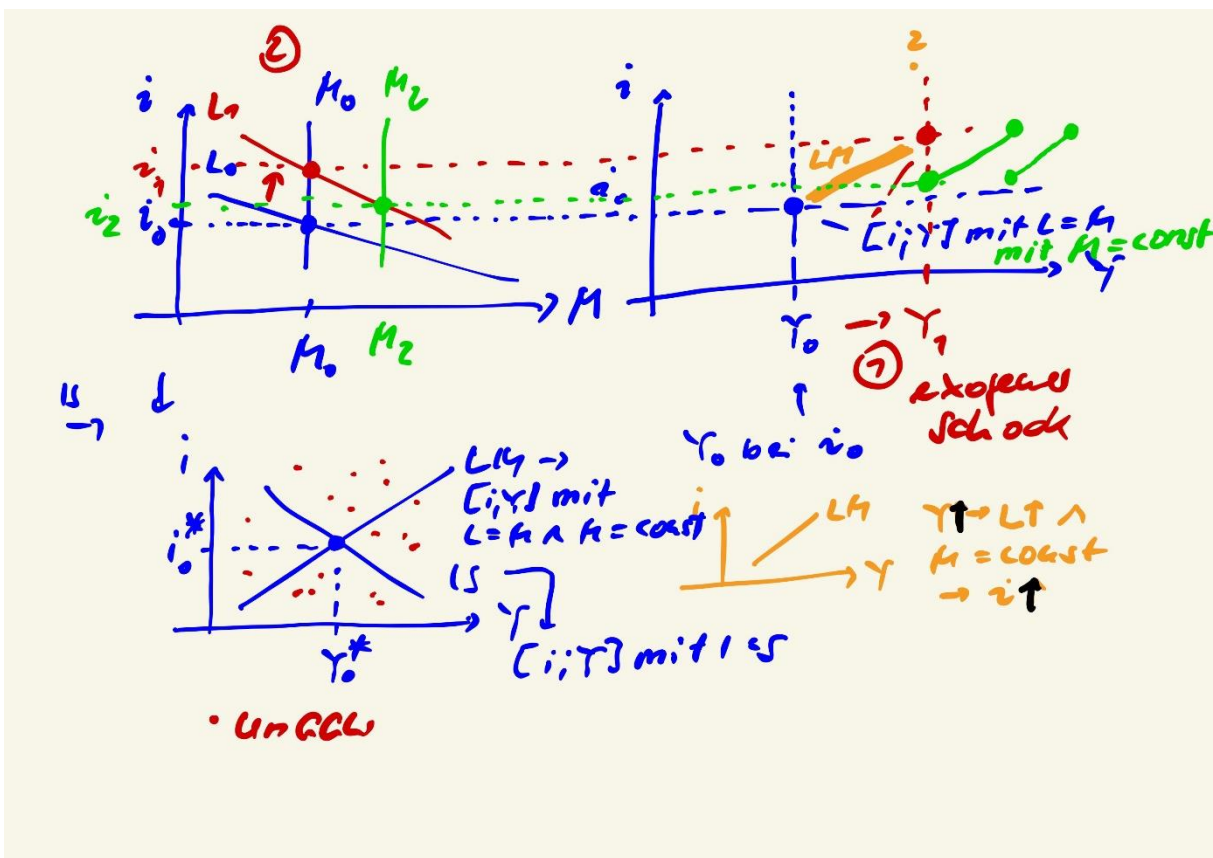 ②
i
L₁
M₀
M₂
L₀
i₁
i₂
i₀
M
M₀
M₂
2
i
LM
i₀
[i;Y] mit L=M
mit M=const
Y
Y₀ → Y₁
①
exogener
Schock
↑
Y₀ bei i₀
IS
→
i
i₀*
LM →
[i,Y] mit
L=M ∧ M=const
IS
Y
Y₀*
[i;Y] mit I=S
i
LM
Y
Y↑→ L↑ ∧
M = const
→ i↑
• UnGGW